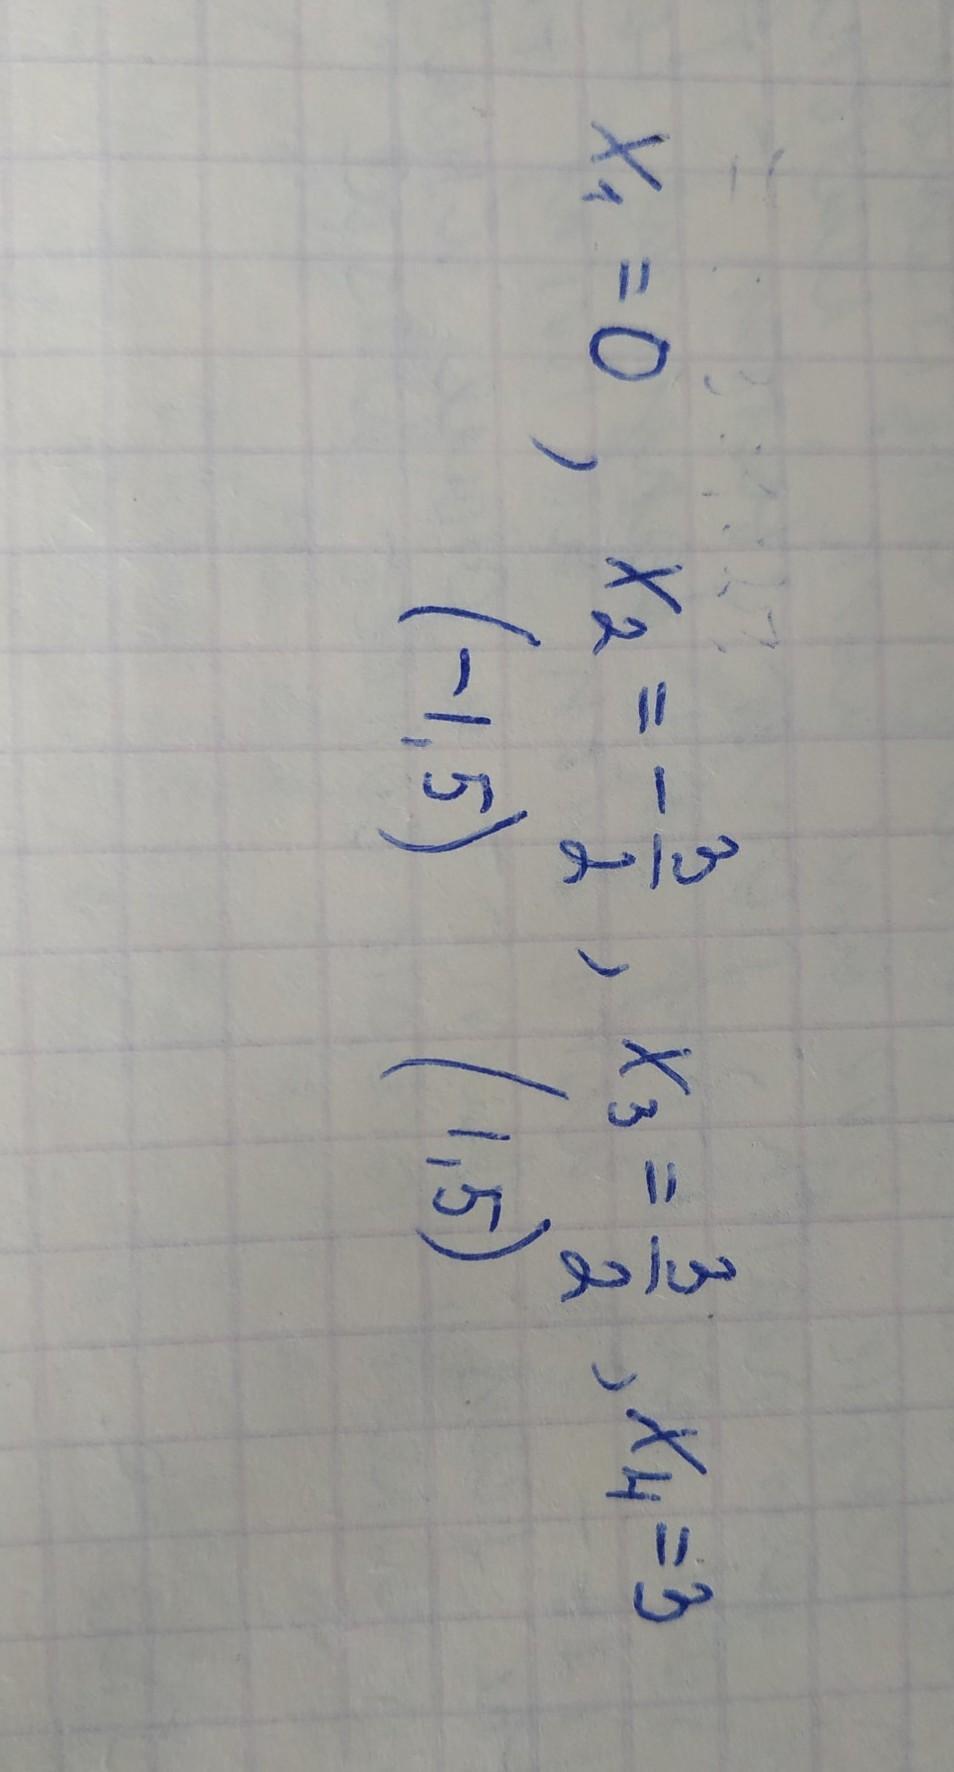 x₁ = 0 , x₂ = - 3/2 , x₃ = 3/2 , x₄ = 3
(-1,5) (1,5)